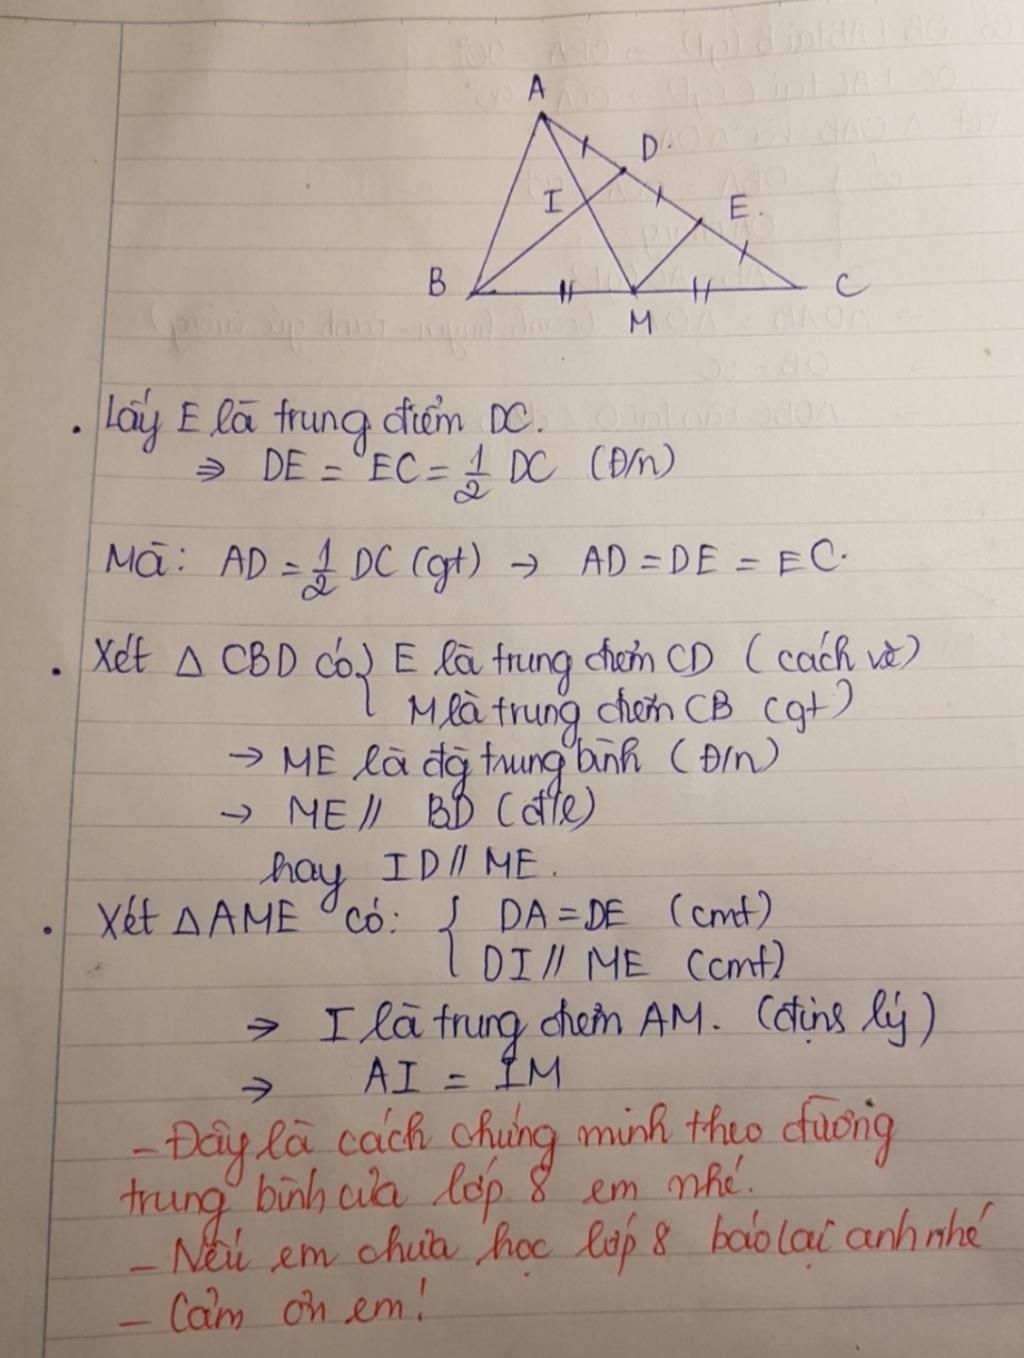 A
D.
I
E.
B
C
M
. Lấy E là trung điểm DC.
⇒ DE = EC = 1/2 DC (Đ/n)
Mà: AD = 1/2 DC (gt) → AD = DE = EC.
. Xét Δ CBD có { E là trung điểm CD ( cách vẽ)
M là trung điểm CB (gt)
→ ME là đg trung bình (Đ/n)
→ ME // BD (đ/l)
hay ID // ME.
. Xét Δ AME có: { DA = DE (cmt)
DI // ME (cmt)
⇒ I là trung điểm AM. (định lý)
⇒ AI = IM
- Đây là cách chứng minh theo đường
trung bình của lớp 8 em nhé.
- Nếu em chưa học lớp 8 báo lại anh nhé
- Cảm ơn em!